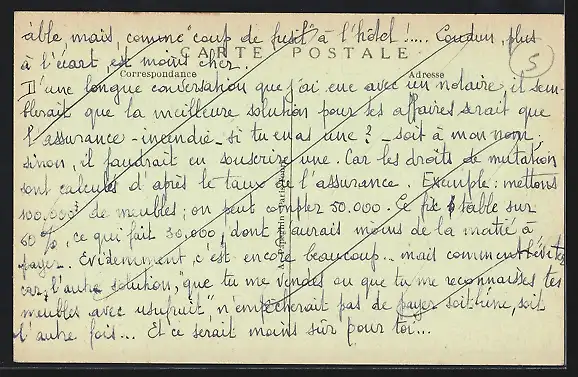 able mais, comme "coup de fusil" à l'hôtel !.... Loudun, plus
5
CARTE POSTALE
à l'écart, est moins cher.
Correspondance
Adresse
D'une longue conversation que j'ai eue avec un notaire, il sem-
blerait que la meilleure solution pour tes affaires serait que
l'assurance-incendie - si tu en as une ? - soit à mon nom,
sinon, il faudrait en souscrire une. Car les droits de mutation
sont calculés d'après le taux de l'assurance. Exemple : mettons
100.000f de meubles ; on peut compter 50.000. Le fisc table sur
60 %, ce qui fait 30.000, dont j'aurais moins de la moitié à
payer. Evidemment, c'est encore beaucoup... mais comment l'éviter
car, l'autre solution, "que tu me vendes ou que tu me reconnaisses tes
meubles avec usufruit" n'empêcherait pas de payer soit l'une, soit
l'autre fois... Et ce serait moins sûr pour toi...